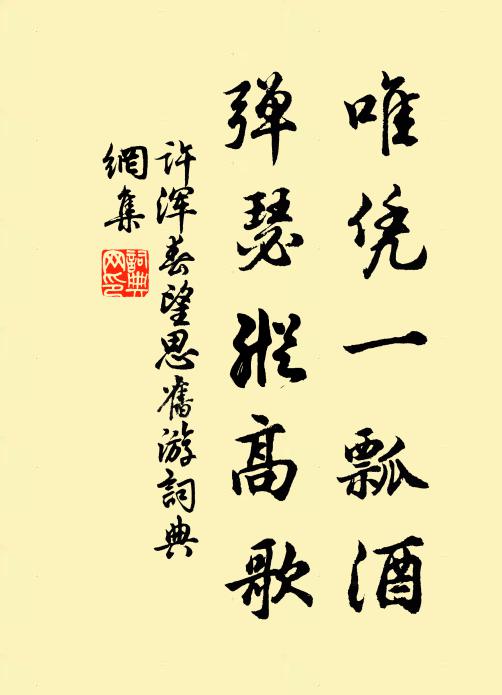 唯凭一瓢酒
弹瑟縱高歌
许浑春望思舊游詞典
網集
詞典
网印